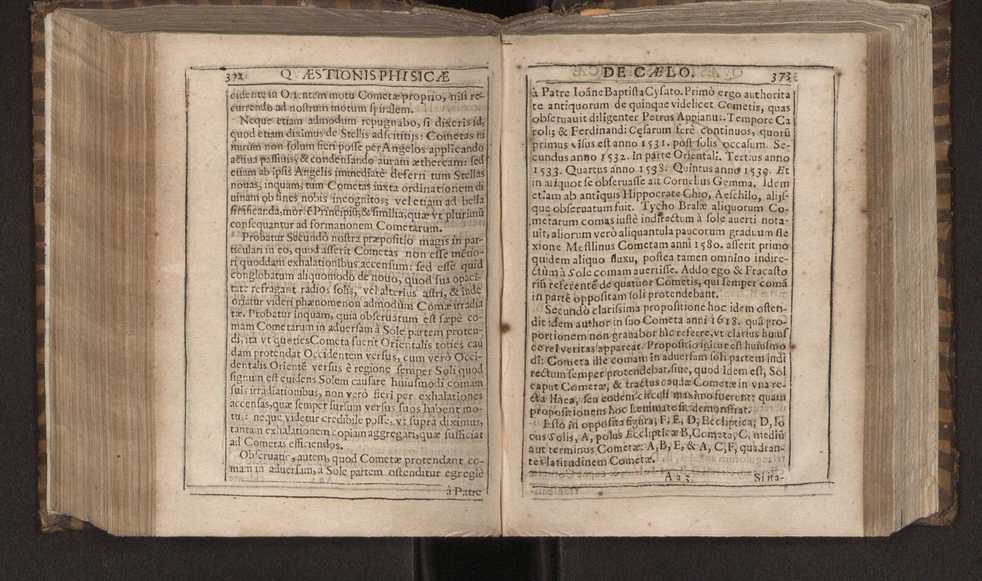 372 QVÆSTIONIS PHISICÆ
cidente in Orientem motu Cometæ proprio, nisi re-
currendo ad nostrum motum spiralem.
Neque etiam admodum repugnabo, si dixeris id,
quod etiam diximus de Stellis adscititijs: Cometas ni
mirum non solum fieri posse per Angelos applicando
actiua passiuis, & condensando auram ætheream: sed
etiam ab ipsis Angelis immediatè deferri tum Stellas
nouas, inquam, tum Cometas iuxta ordinationem di
uinam ob fines nobis incognitos; vel etiam ad bella
significanda, mortē Principis, & similia, quæ vt plurimū
consequantur ad formationem Cometarum.
Probatur Secundò nostra præpositio magis in par-
ticulari in eo, quod asserit Cometas non esse meteo-
ri quoddam exhalationibus accensum: sed esse quid
conglobatum aliquomodo de nouo, quod sua opaci-
tate refragant radios solis, vel alterius astri, & inde
oriatur videri phænomenon admodum Comæ irradia
tæ. Probatur inquam, quia obseruatum est sæpè co-
mam Cometarum in aduersam à Sole partem proten-
di, ita vt quoties Cometa fuerit Orientalis toties cau
dam protendat Occidentem versus, cum verò Occi-
dentalis Orientē versus è regione semper Soli quod
signum est euidens Solem causare huiusmodi comam
suis irradiationibus, non verò fieri per exhalationes
accensas, quæ semper sursum versus suos habent mo-
tus: neque videtur credibile posse, vt supra diximus,
tantam exhalationem copiam aggregari, quæ sufficiat
ad Cometas efficiendos.
Obseruatio, autem, quod Cometæ protendant co-
mam in aduersum, à Sole partem ostenditur egregiè
à Patre
DE CÆLO. 373
à Patre Ioāne Baptista Cysato. Primò ergo authorita
te antiquorum de quinque videlicet Cometis, quas
obseruauit diligenter Petrus Appianus. Tempore Ca
roli; & Ferdinandi Cęsarum ferè continuos, quorū
primus visus est anno 1531. post solis occasum. Se-
cundus anno 1532. In parte Orientali. Tertius anno
1533. Quartus anno 1538. Quintus anno 1539. Et
in aliquot se obseruasse ait Cornelius Gemma. Idem
etiam ab antiquis Hippocrate Chio, Aeschilo, alijs-
que obseruatum fuit. Tycho Brahæ aliquorum Co-
metarum comas iustè indirectum à sole auerti nota-
uit, aliorum verò aliquantula paucorum graduum fle
xione Mestlinus Cometam anni 1580. asserit primo
quidem aliquo fluxu, postea tamen omnino indire-
ctum à Sole comam auertisse. Addo ego & Fracasto
riū referentē de quatuor Cometis, qui semper comā
in partē oppositam soli protendebant.
Secundò clarissima propositione hoc idem osten-
dit idem author in suo Cometa anni 1618. quā pro-
portionem non grauabor hîc referre, vt clarius huius
ce rei veritas appareat. Propositio igitur est huiusmo
di: Cometa ille comam in aduersam soli partem indi
rectum semper protendebat, siue, quod Idem est, Sol
caput Cometæ, & tractus caudæ Cometæ in vna re-
cta linea, seu eodem circuli maximo fuerent: quam
propositionem hoc Lemmate sic demonstrat.
Esto in opposita figura, F, E, D, Eccliptica; D, lo
cus Solis, A, polus Eclipticæ B, Cometa, C, mediū
aut terminus Cometæ: A, B, E, & A, C, F, quadran-
tes latitudinem Cometæ.
Aa 3 Si ita-